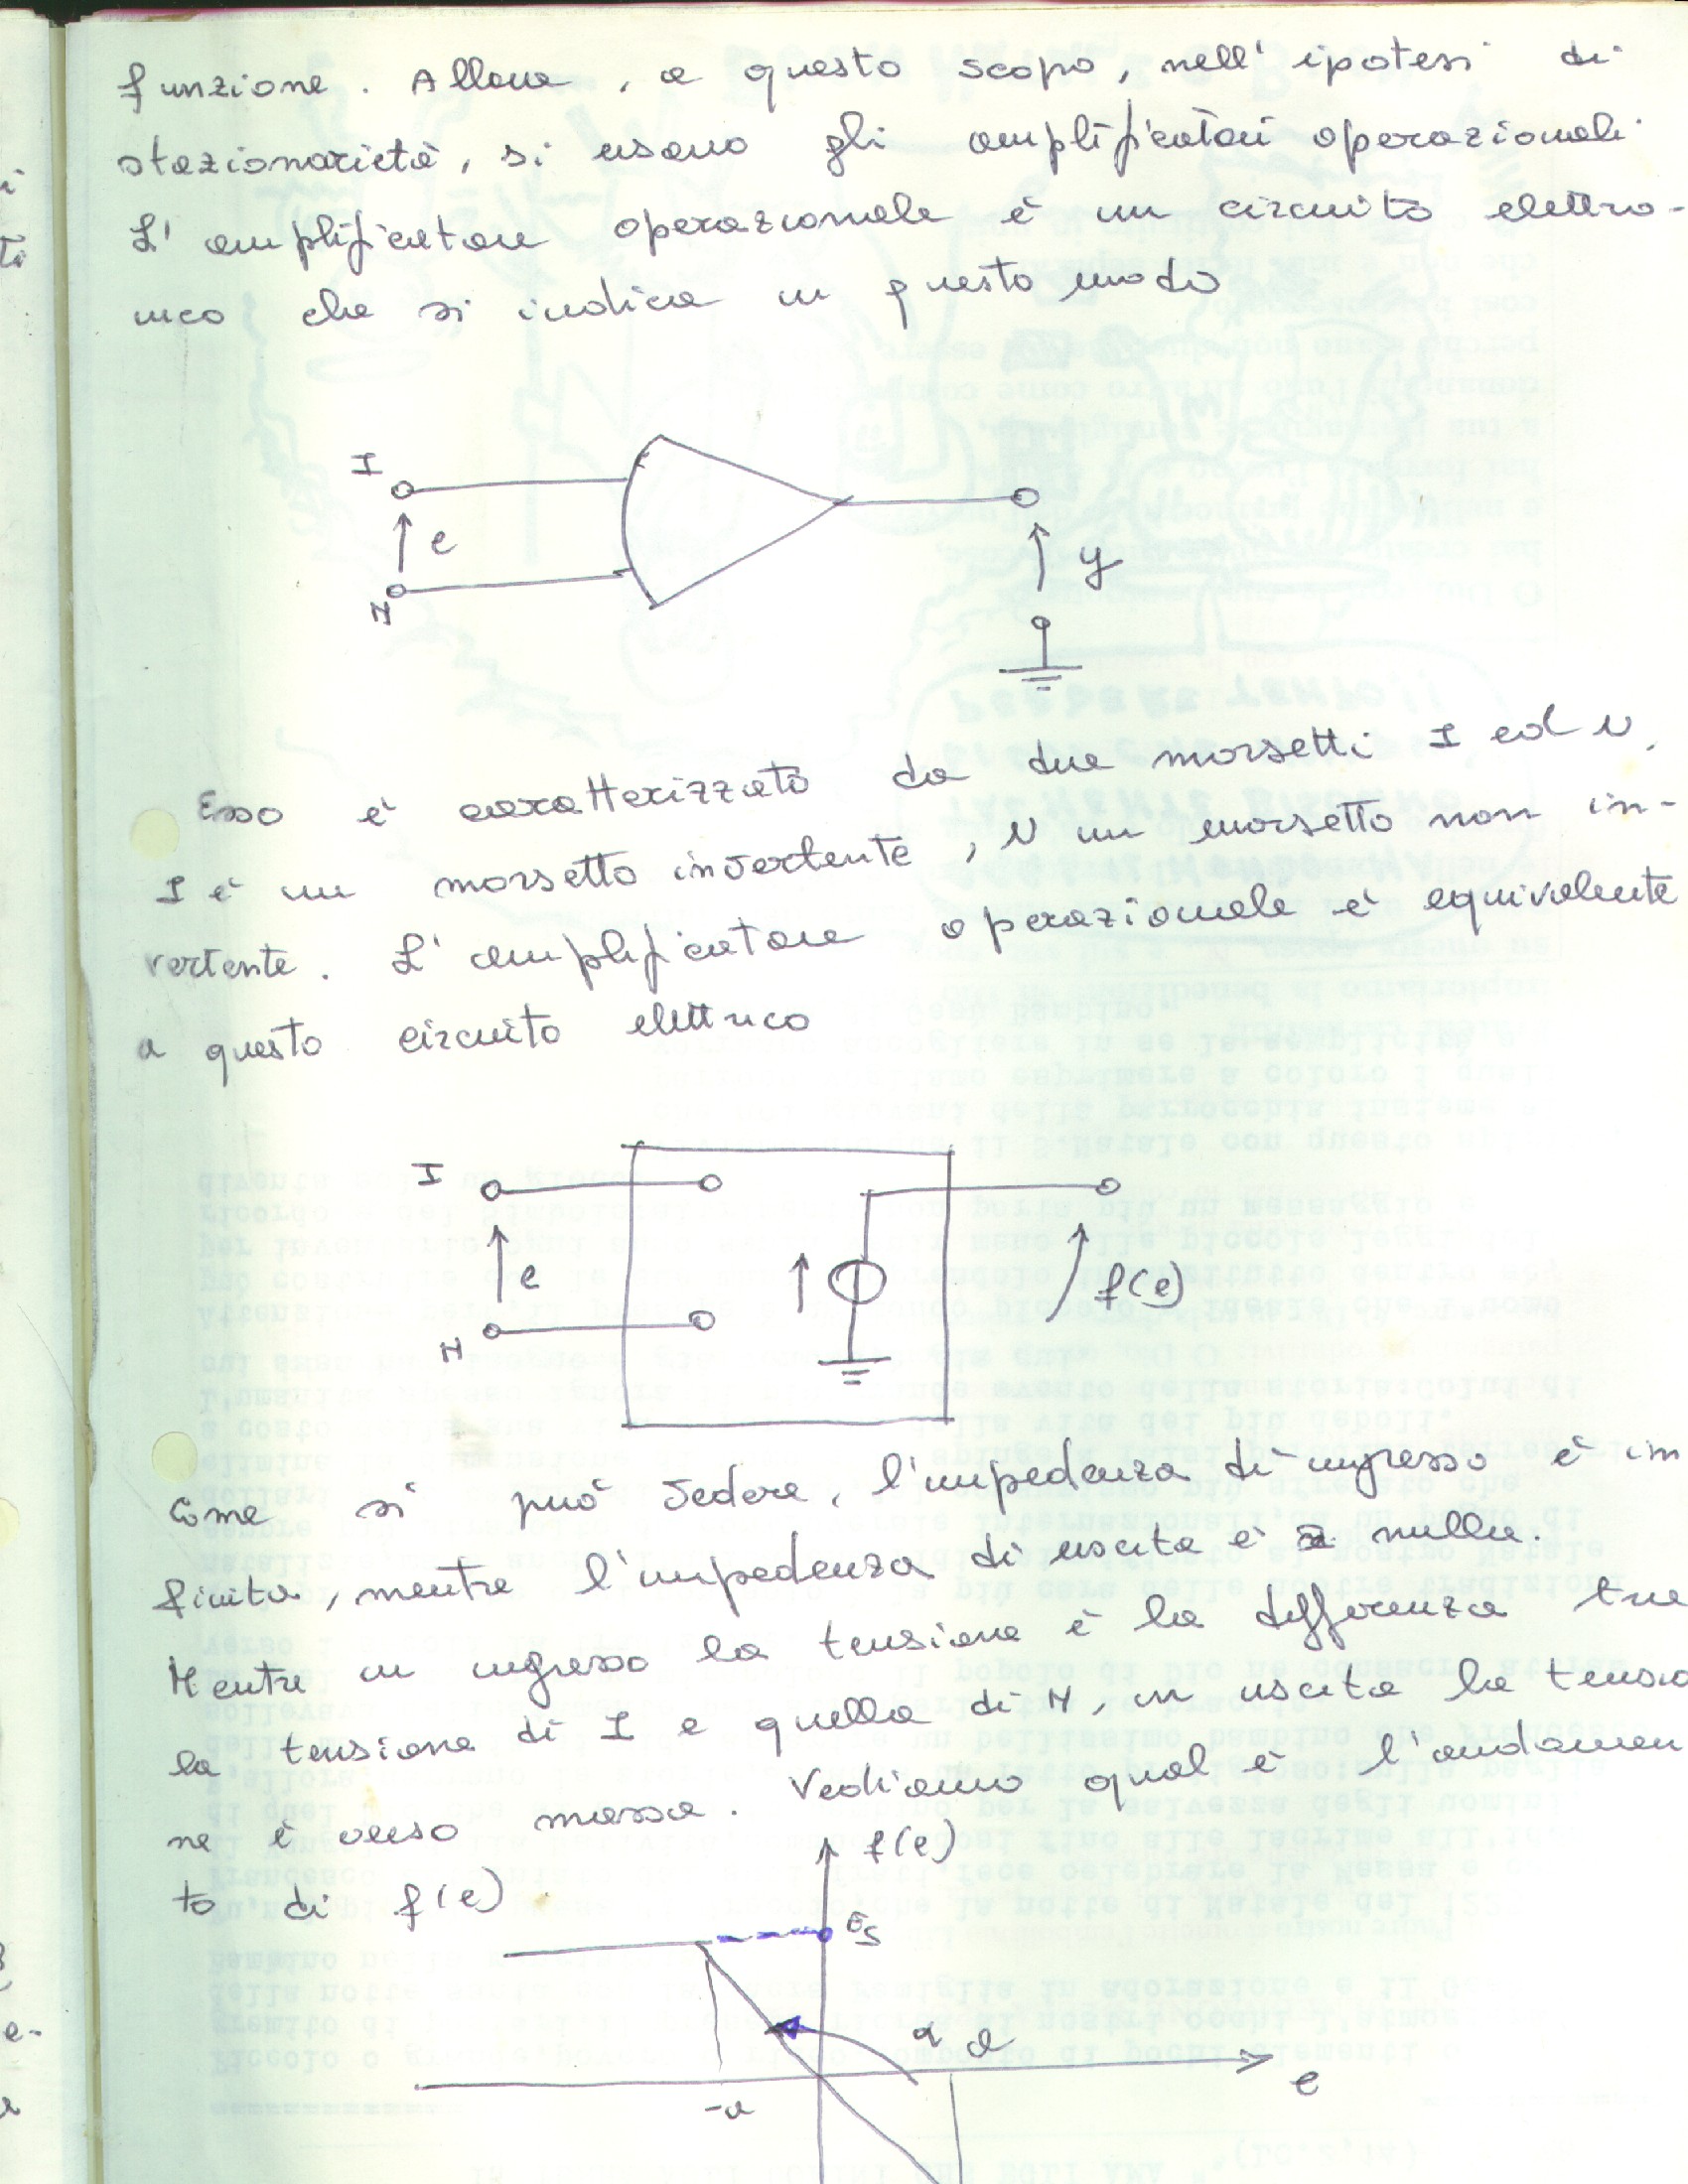 funzione. Allora, a questo scopo, nell'ipotesi di
stazionarietà, si usano gli amplificatori operazionali
L'amplificatore operazionale è un circuito elettro-
nico che si indica in questo modo
I
e
N
y
Esso è caratterizzato da due morsetti I ed N.
I è un morsetto invertente, N un morsetto non in-
vertente. L'amplificatore operazionale è equivalente
a questo circuito elettrico
I
e
N
f(e)
Come si può vedere, l'impedenza di ingresso è in
finita, mentre l'impedenza di uscita è nulla.
Mentre in ingresso la tensione è la differenza tra
la tensione di I e quella di N, in uscita la tensio
ne è verso massa. Vediamo qual è l'andamen
to di f(e)
f(e)
Es
α
a
e
-a